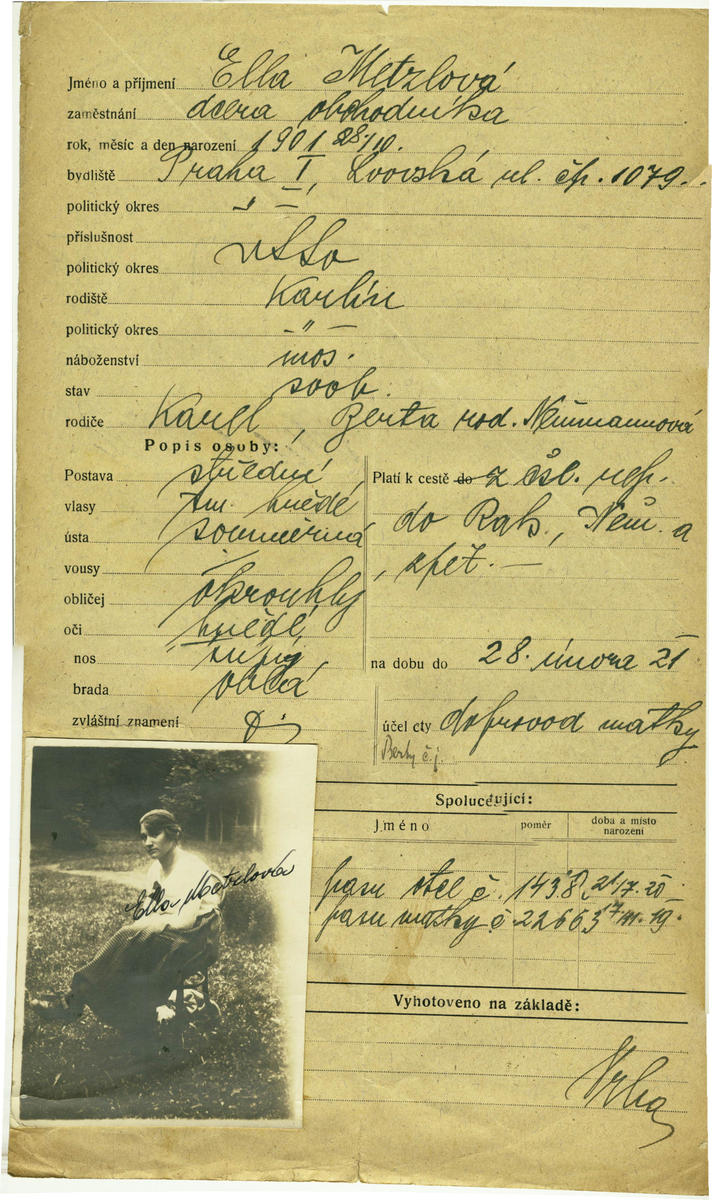 Jméno a příjmení Ella Metzlová
zaměstnání dcera obchodníka
rok, měsíc a den narození 1901 28/10.
bydliště Praha I, Lvovská ul. čp. 1079.
politický okres „ —
příslušnost
politický okres
rodiště Karlín
politický okres — „ —
náboženství mos.
stav svob.
rodiče Karel, Berta roz. Neumannová
Popis osoby:
Postava střední,
vlasy tm. hnědé
ústa souměrná
vousy
obličej okrouhlý
oči hnědé,
nos
brada oblá
zvláštní znamení
Platí k cestě do z čsl. rep.
do Rak., Něm. a
zpět. —
na dobu do 28. února 21
účel cty doprovod matky
Berty č.j.
Spolucestující:
Jméno poměr doba a místo narození
pasu otce č. 1438, 21/7. 20
pasu matky č. 22663
Vyhotoveno na základě:
Vrba
Ella Metzlová